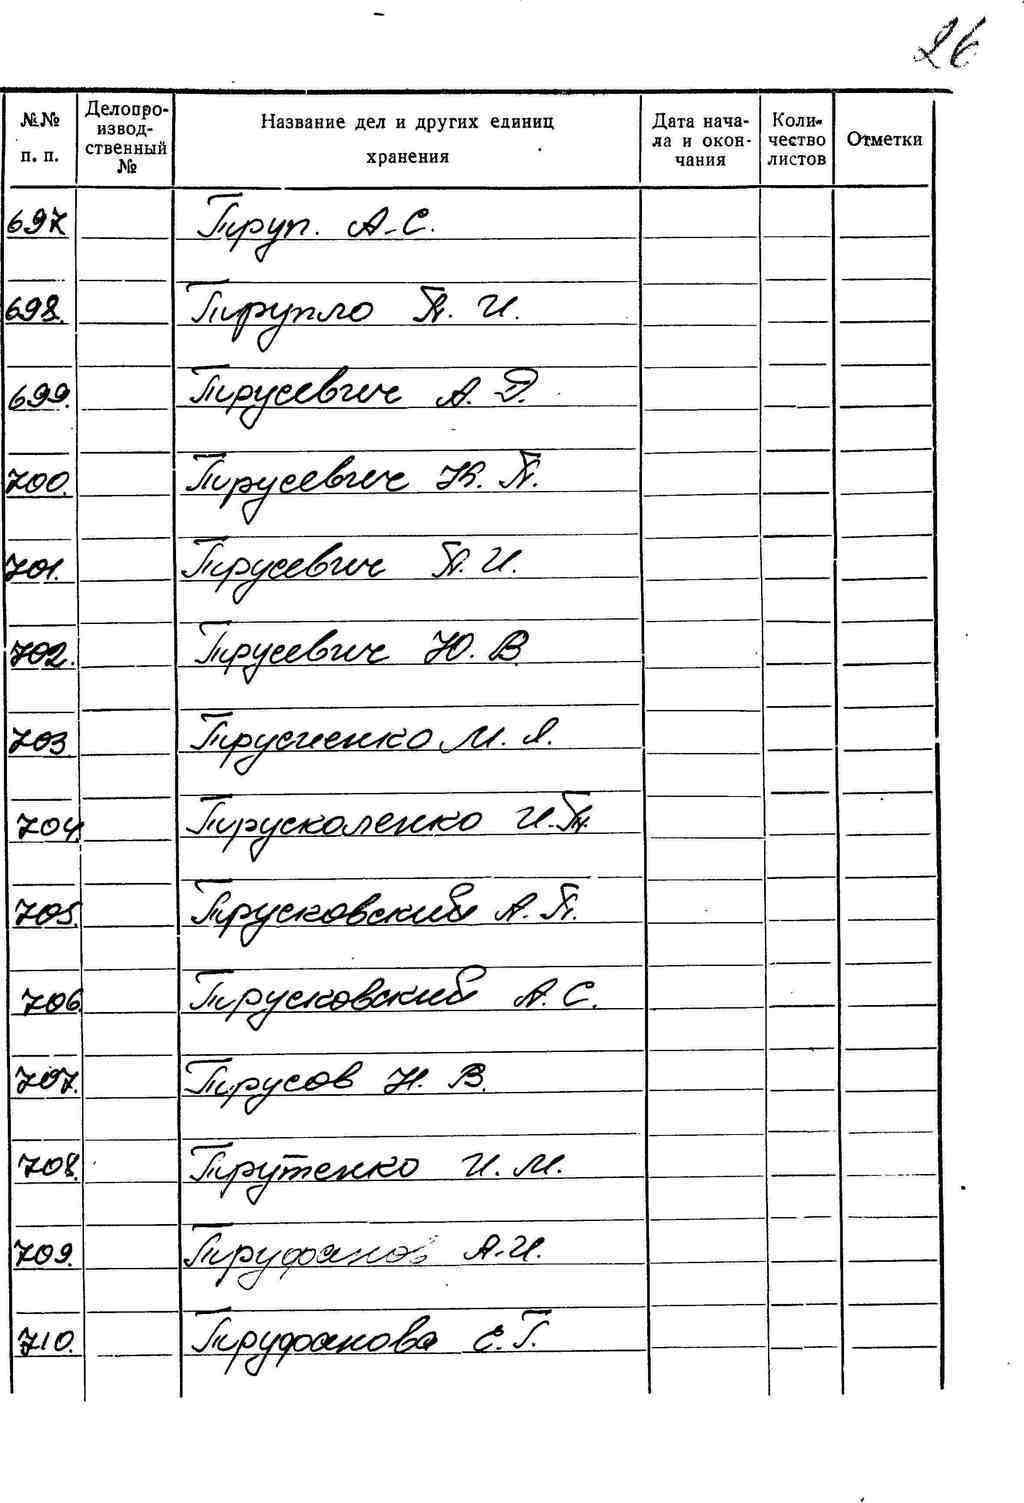 26
№№ п. п. Делопроизводственный № Название дел и других единиц хранения Дата начала и окончания Количество листов Отметки
697 Труп. А.С.
698. Трупло П. И.
699. Трусевич А. Д.
700. Трусевич К. П.
701. Трусевич П. И.
702. Трусевич Ю. В.
703. Трусиенко М. Я.
704. Трусколенко И. П.
705. Трусковский А. П.
706. Трусковский А. С.
707. Трусов Н. В.
708. Трутенко И. М.
709. Труфанов А. И.
710. Труфанова Е. Г.